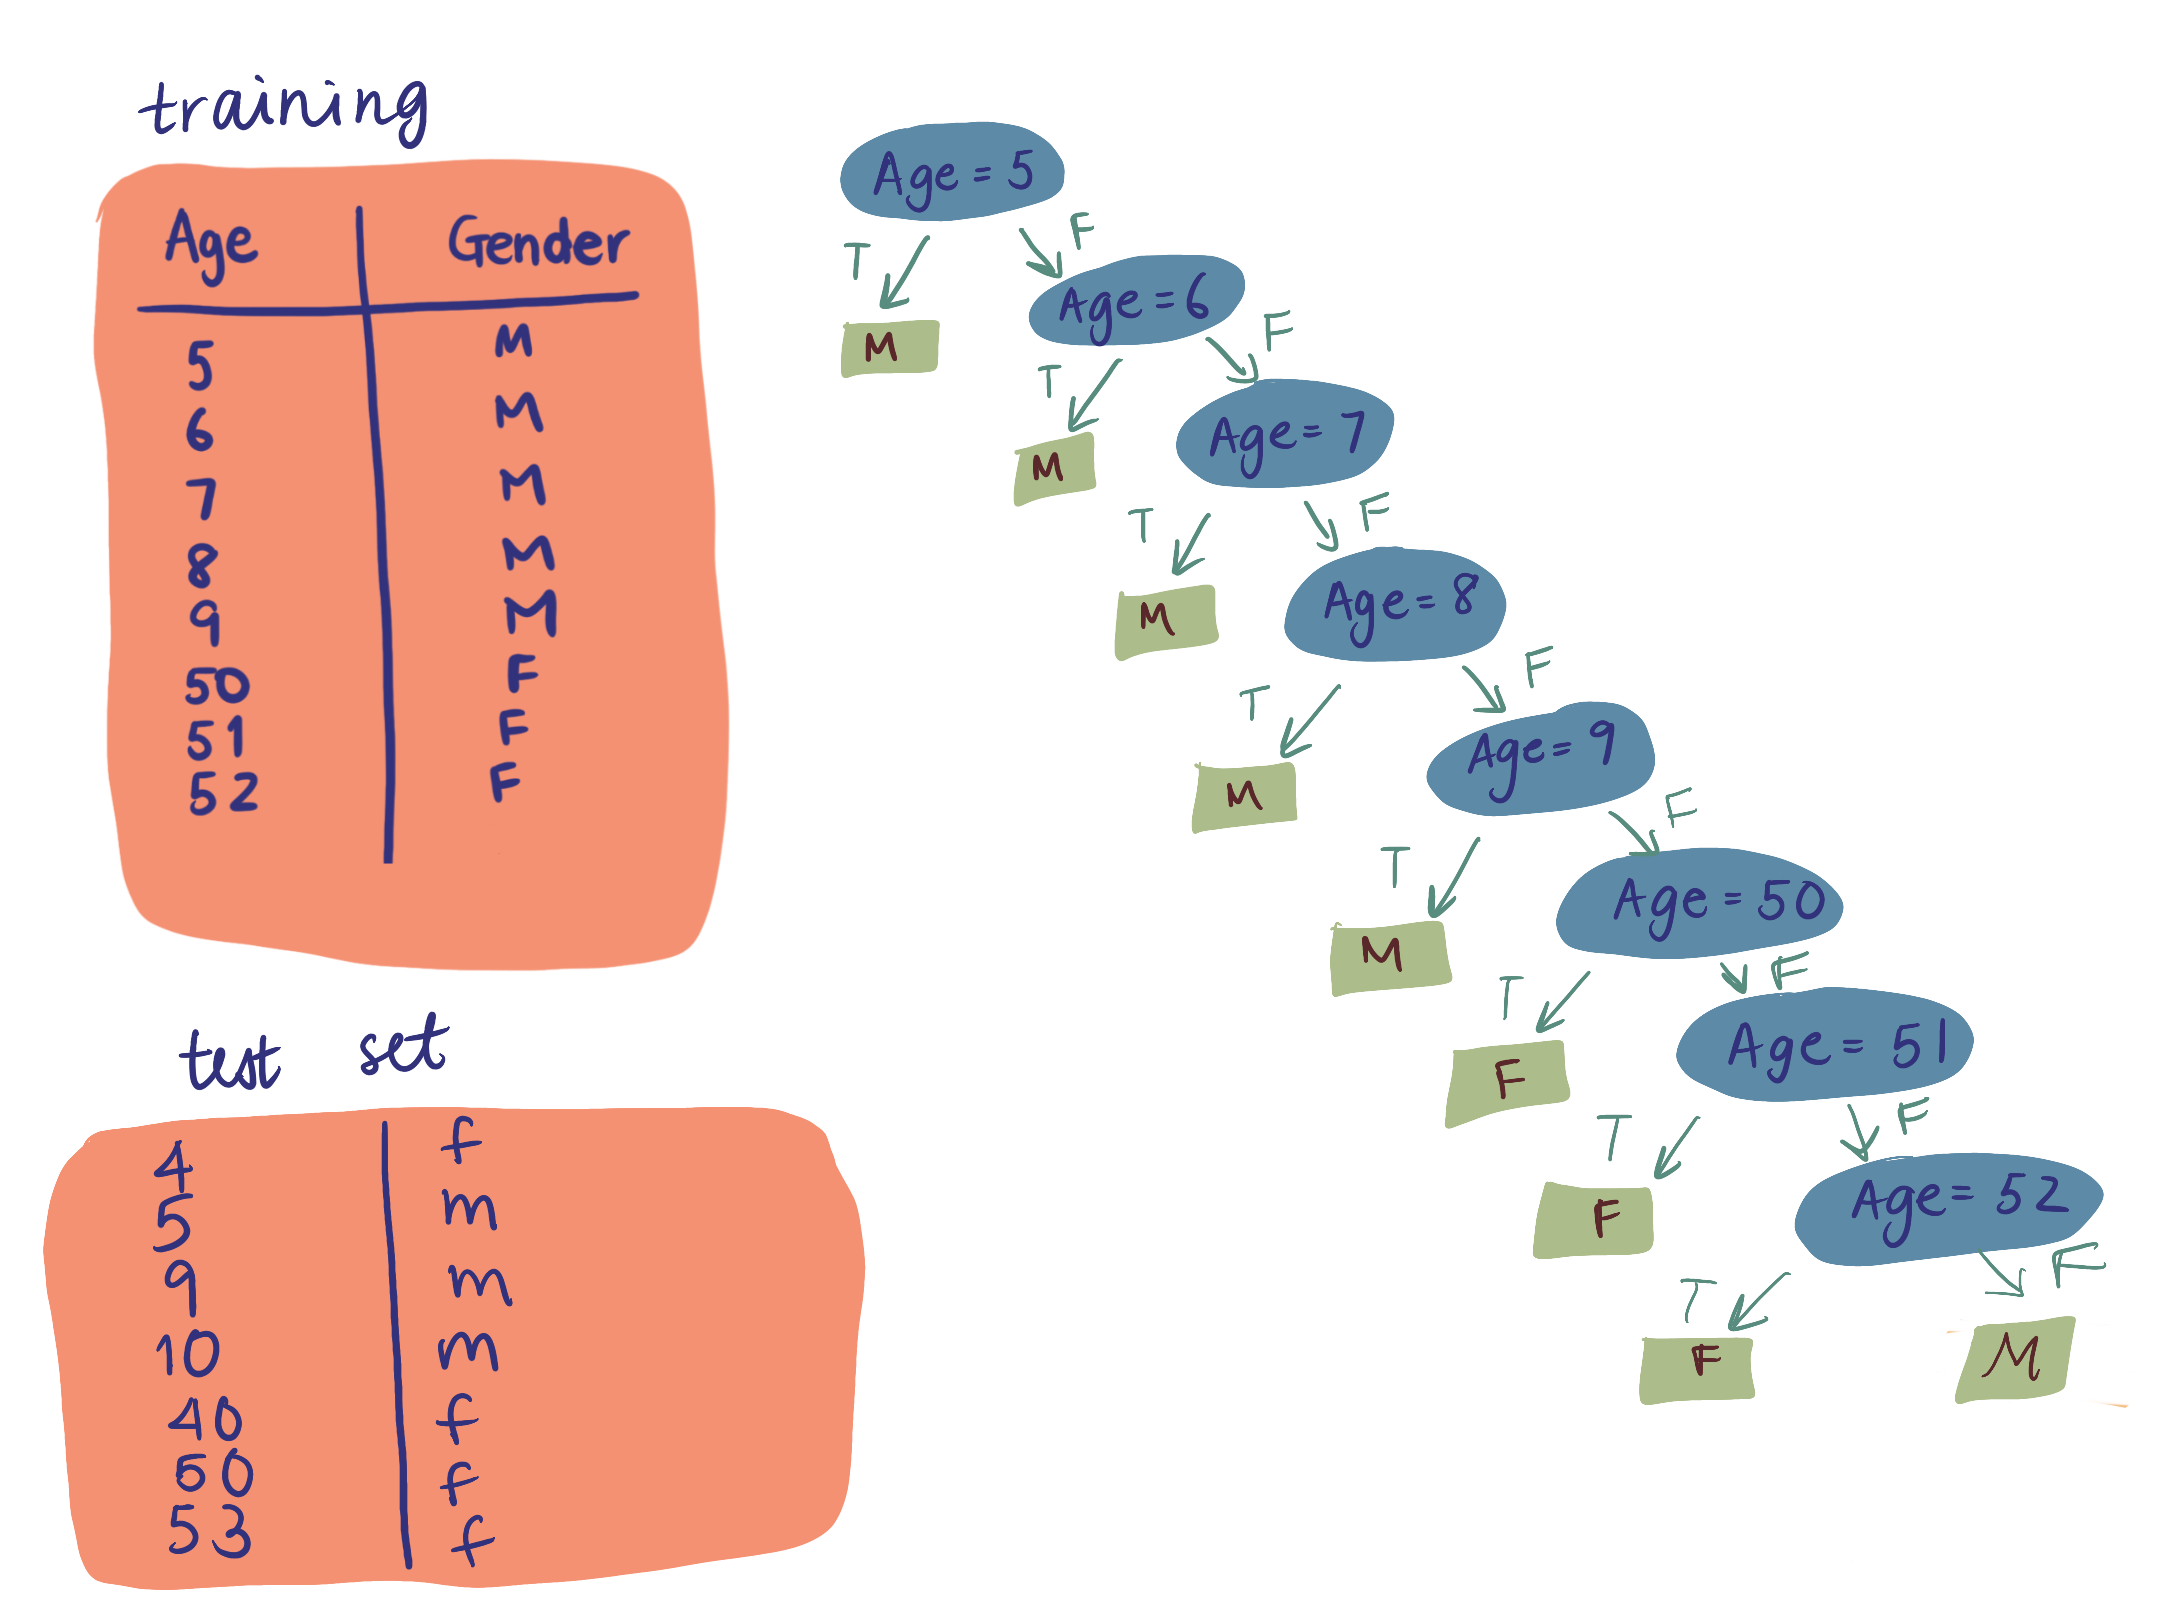 training
Age Gender
5 M
6 M
7 M
8 M
9 M
50 F
51 F
52 F
test set
4 f
5 m
9 m
10 m
40 f
50 f
53 f
Age = 5
T F
M
Age = 6
T F
M
Age = 7
T F
M
Age = 8
T F
M
Age = 9
T F
M
Age = 50
T F
F
Age = 51
T F
F
Age = 52
T F
F M